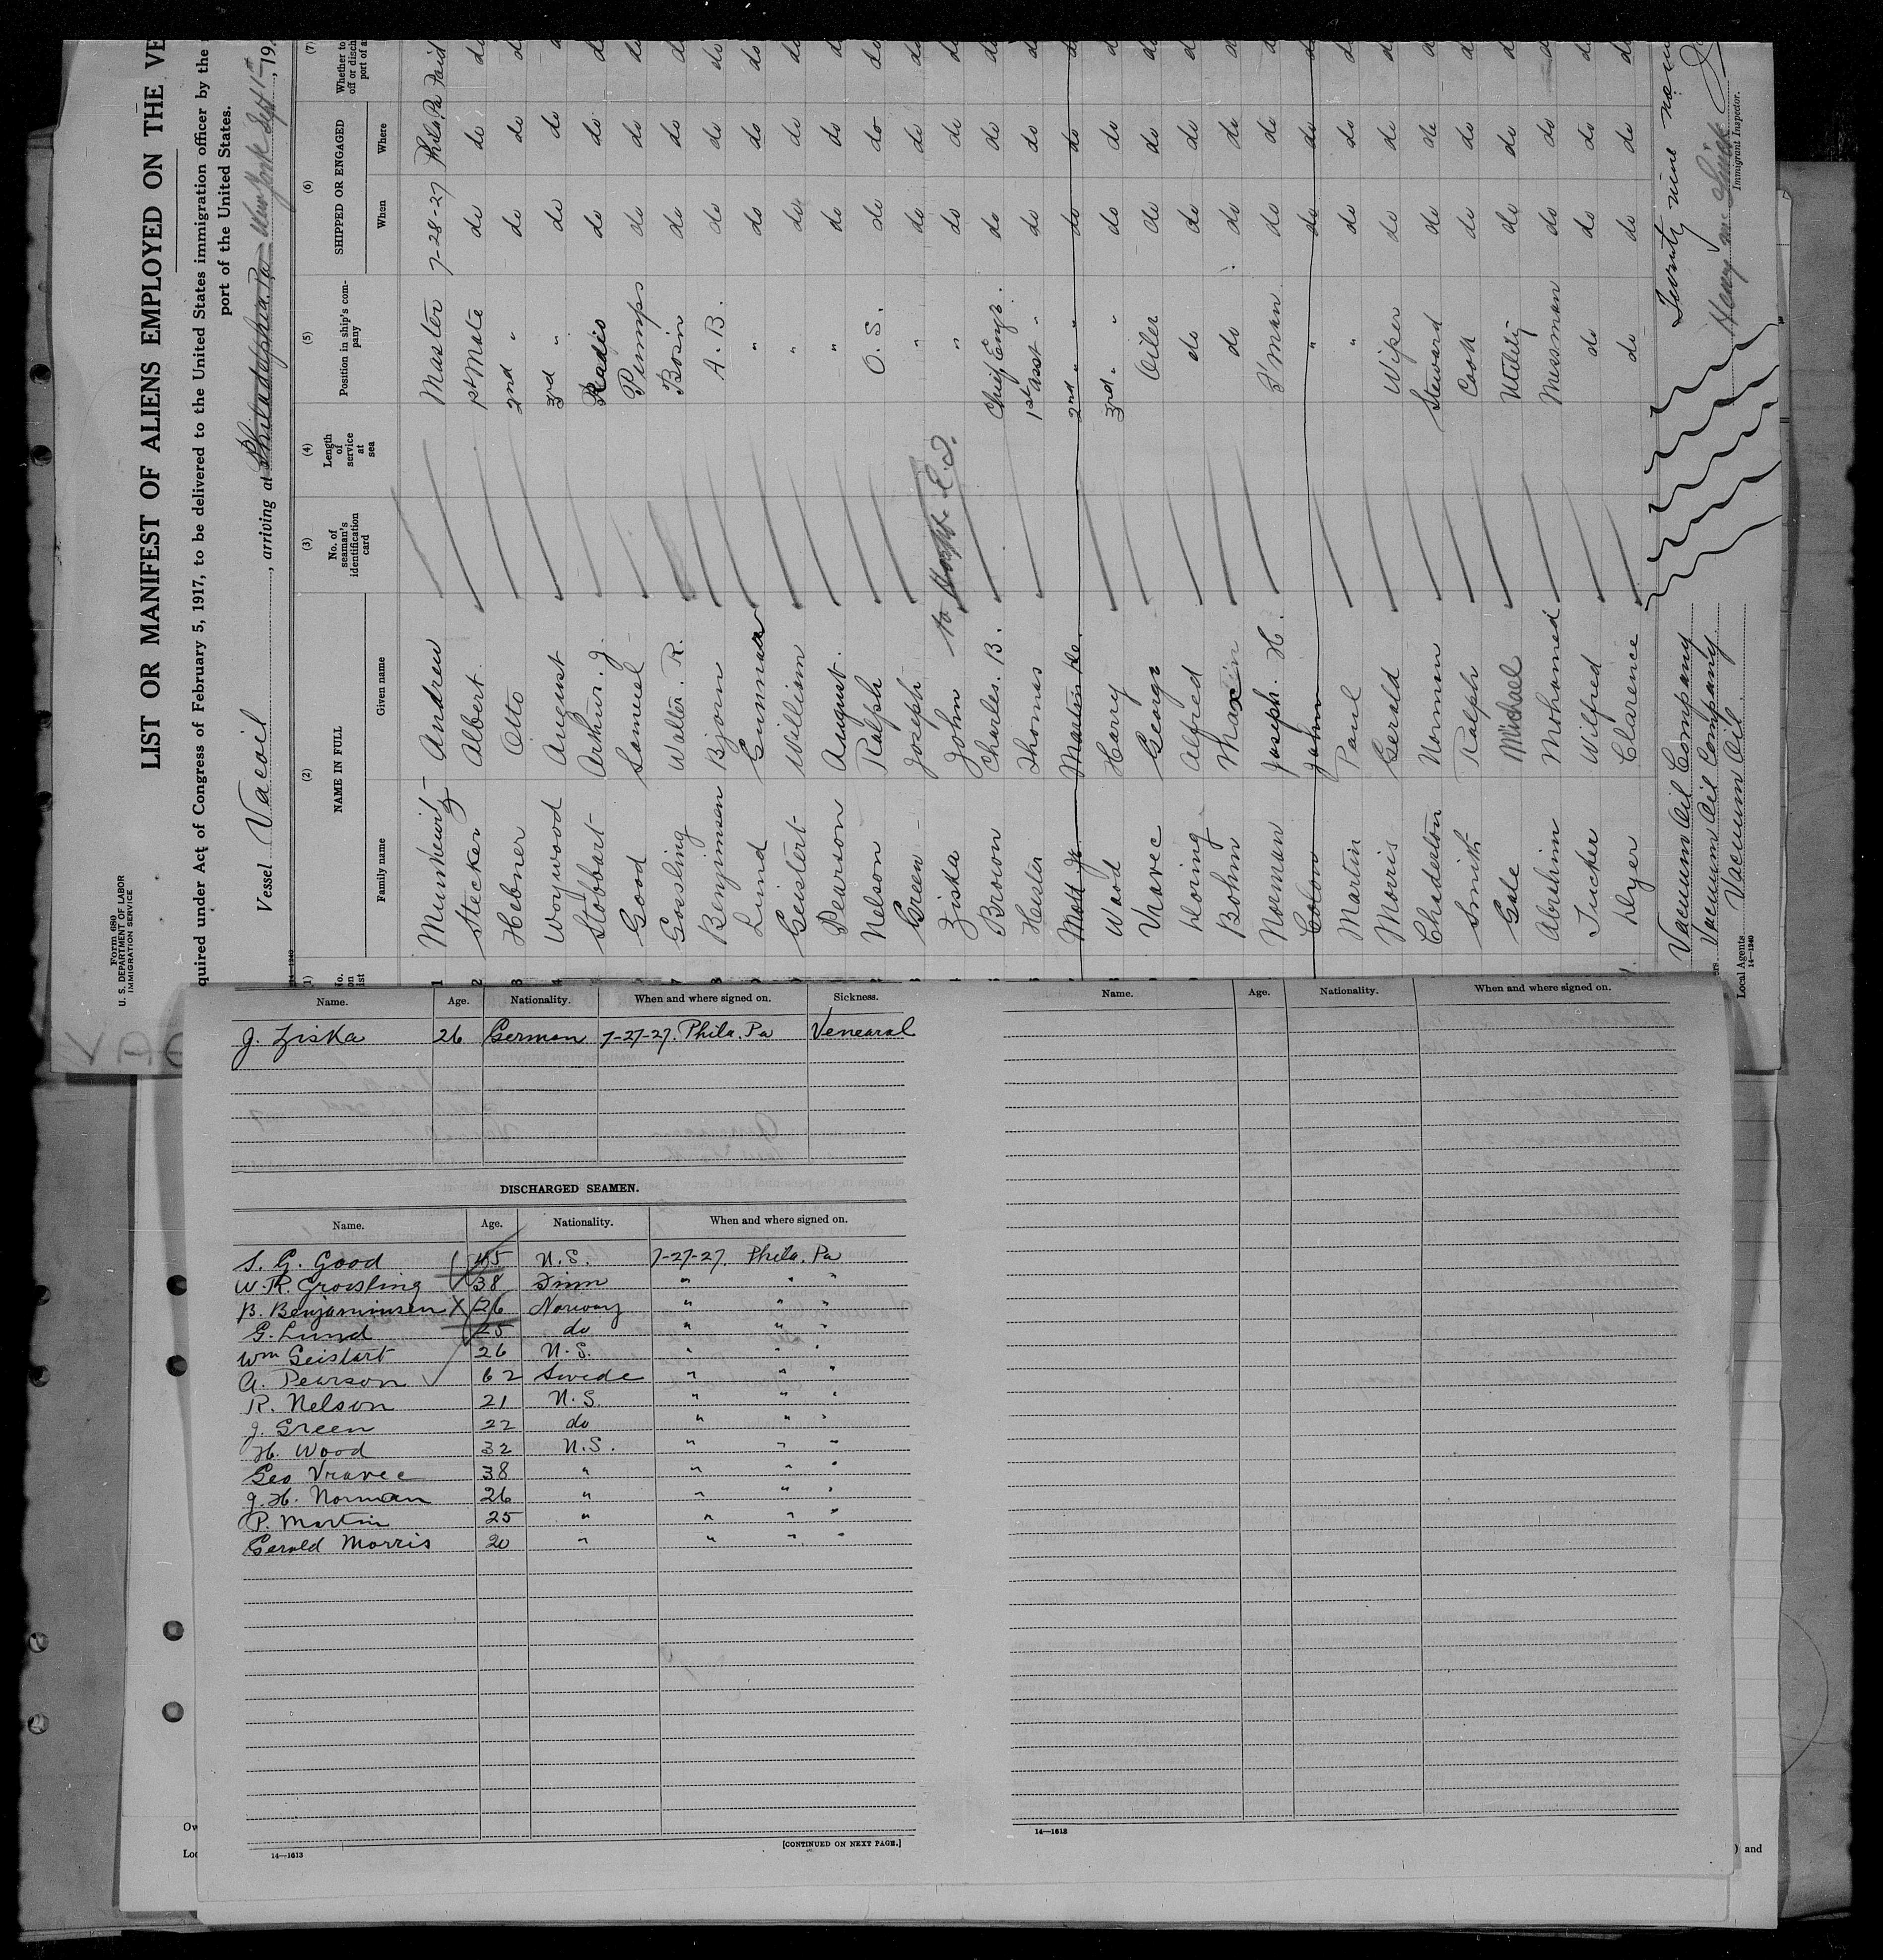 Form 680
U. S. DEPARTMENT OF LABOR
IMMIGRATION SERVICE
LIST OR MANIFEST OF ALIENS EMPLOYED ON THE VE
quired under Act of Congress of February 5, 1917, to be delivered to the United States immigration officer by the
port of the United States.
Vessel Vacoil, arriving at Philadelphia, Pa New York Sept 1st, 19
(2) (3) (4) (5) (6) (7)
NAME IN FULL No. of seaman's identification card Length of service at sea Position in ship's company SHIPPED OR ENGAGED Whether to
off or disch
port of a
Family name Given name When Where
1 Andrew Master 7-28-27 Phila Pa Paid
2 Stecker Albert 1st Mate do do do
3 Hebner Otto 2nd " do do do
Woywood August 3rd " do do
Stobbart Arthur. J. Radio do do do
Good Samuel Pumps do do do
Gossling Walter. R. Bosin do do do
Benjimsen Bjorn A. B. do do do
Lund Gunnar " do do do
Geistert William " do do do
Pearson August. " do do do
Nelson Ralph O. S. do do do
Green Joseph " do do do
Ziska John to Hospt. " do do do
Brown Charles. B. Chief Engr. do do do
Hester Thomas 1st Asst " do do do
Martin 2nd " " do do do
Wood Harry 3rd " " do do do
Vravec George Oiler do do do
Doring Alfred do do do do
Bohm do do do do
Norman Joseph. H. F'man do do do
Colon John " do do do
Martin Paul " do do do
Morris Gerald Wiper do do do
Chaderton Norman Steward do do do
Smith Ralph Cook do do do
Gale Michael Utility do do do
Abrahim Mohamed Messman do do do
Tucker Wilfred do do do do
Dyer Clarence do do do do
Vacuum Oil Company
Vacuum Oil Company
Local Agents Vacuum Oil
14—1240
Twenty nine
Immigrant Inspector.
Name. Age. Nationality. When and where signed on. Sickness.
J. Ziska 26 German 7-27-27. Phila. Pa Venearal
DISCHARGED SEAMEN.
Name. Age. Nationality. When and where signed on.
S. G. Good 45 U.S. 7-27-27. Phila. Pa
W. R. Grossling 38 Finn " " "
B. Benjaminsen X 26 Norway " " "
G. Lund 25 do " " "
Wm Geistart 26 U.S. " " "
A. Pearson 62 Swede " " "
R. Nelson 21 U.S. " " "
J. Green 22 do " " "
H. Wood 32 U.S. " " "
Geo Vravec 38 " " " "
J. H. Norman 26 " " " "
P. Martin 25 " " " "
Gerald Morris 20 " " " "
[CONTINUED ON NEXT PAGE.]
14—1613
Name. Age. Nationality. When and where signed on.
14—1613
) and